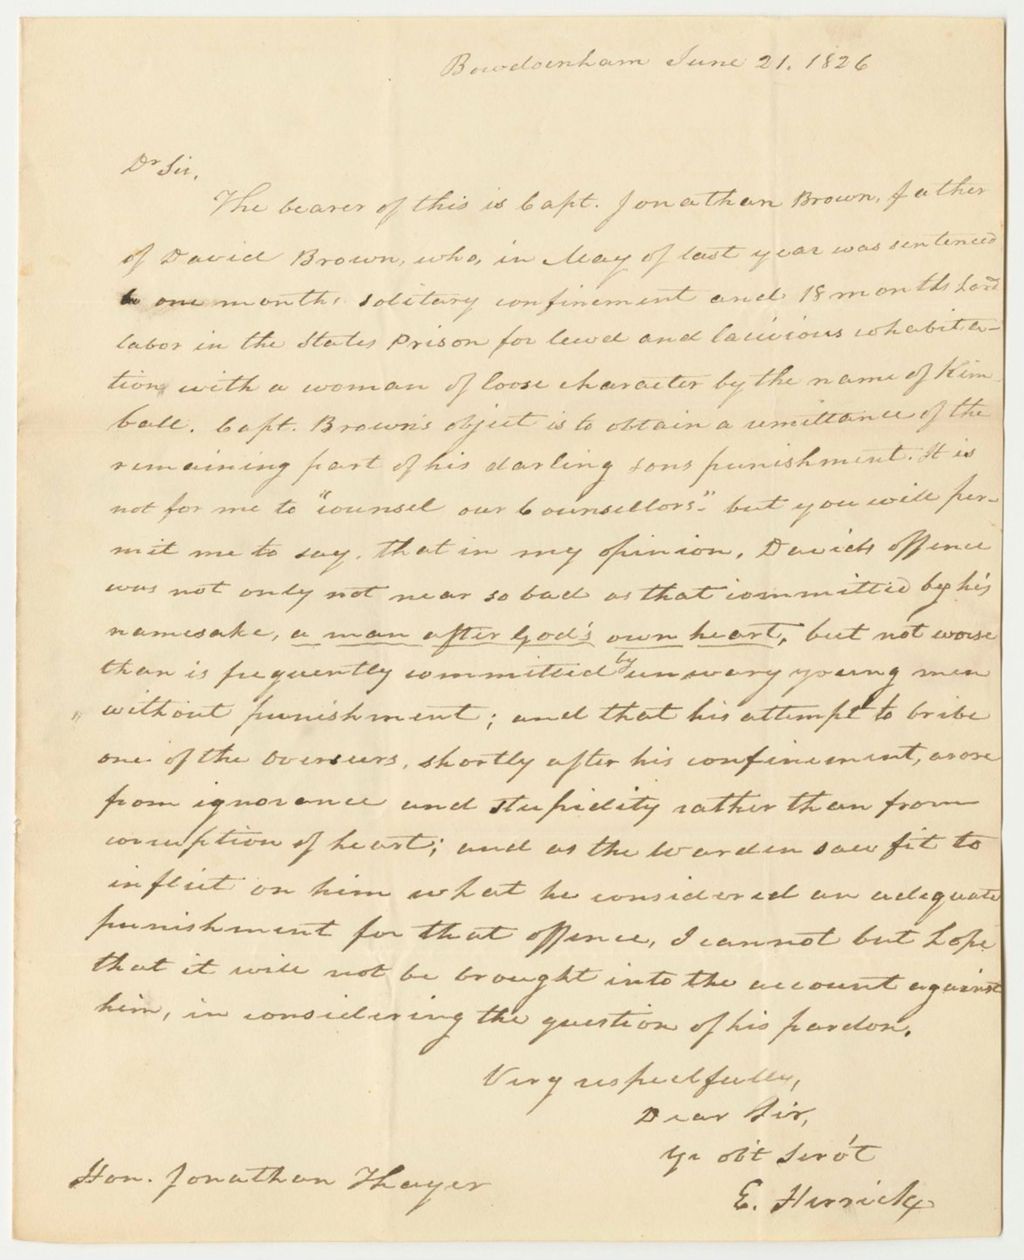 Bowdoinham June 21. 1826
Dr Sir,
The bearer of this is Capt. Jonathan Brown, father
of David Brown, who, in May of last year was sentenced
to one months solitary confinement and 18 months hard
labor in the States Prison for lewd and lacivious cohabita-
tion with a woman of loose character by the name of Kim-
ball. Capt. Brown's object is to obtain a remittance of the
remaining part of his darling sons punishment. It is
not for me to "counsel our Counsellors" - but you will per-
mit me to say, that in my opinion, Davids offence
was not only not near so bad as that committed by his
namesake, a man after God's own heart, but not worse
than is frequently committed by unwary young men
without punishment; and that his attempt to bribe
one of the Overseers, shortly after his confinement, arose
from ignorance and stupidity rather than from
corruption of heart; and as the Warden saw fit to
inflict on him what he considered an adequate
punishment for that offence, I cannot but hope
that it will not be brought into the account against
him, in considering the question of his pardon.
Very respectfully,
Dear Sir,
Yr obt Serv't
E. Herrick
Hon. Jonathan Thayer